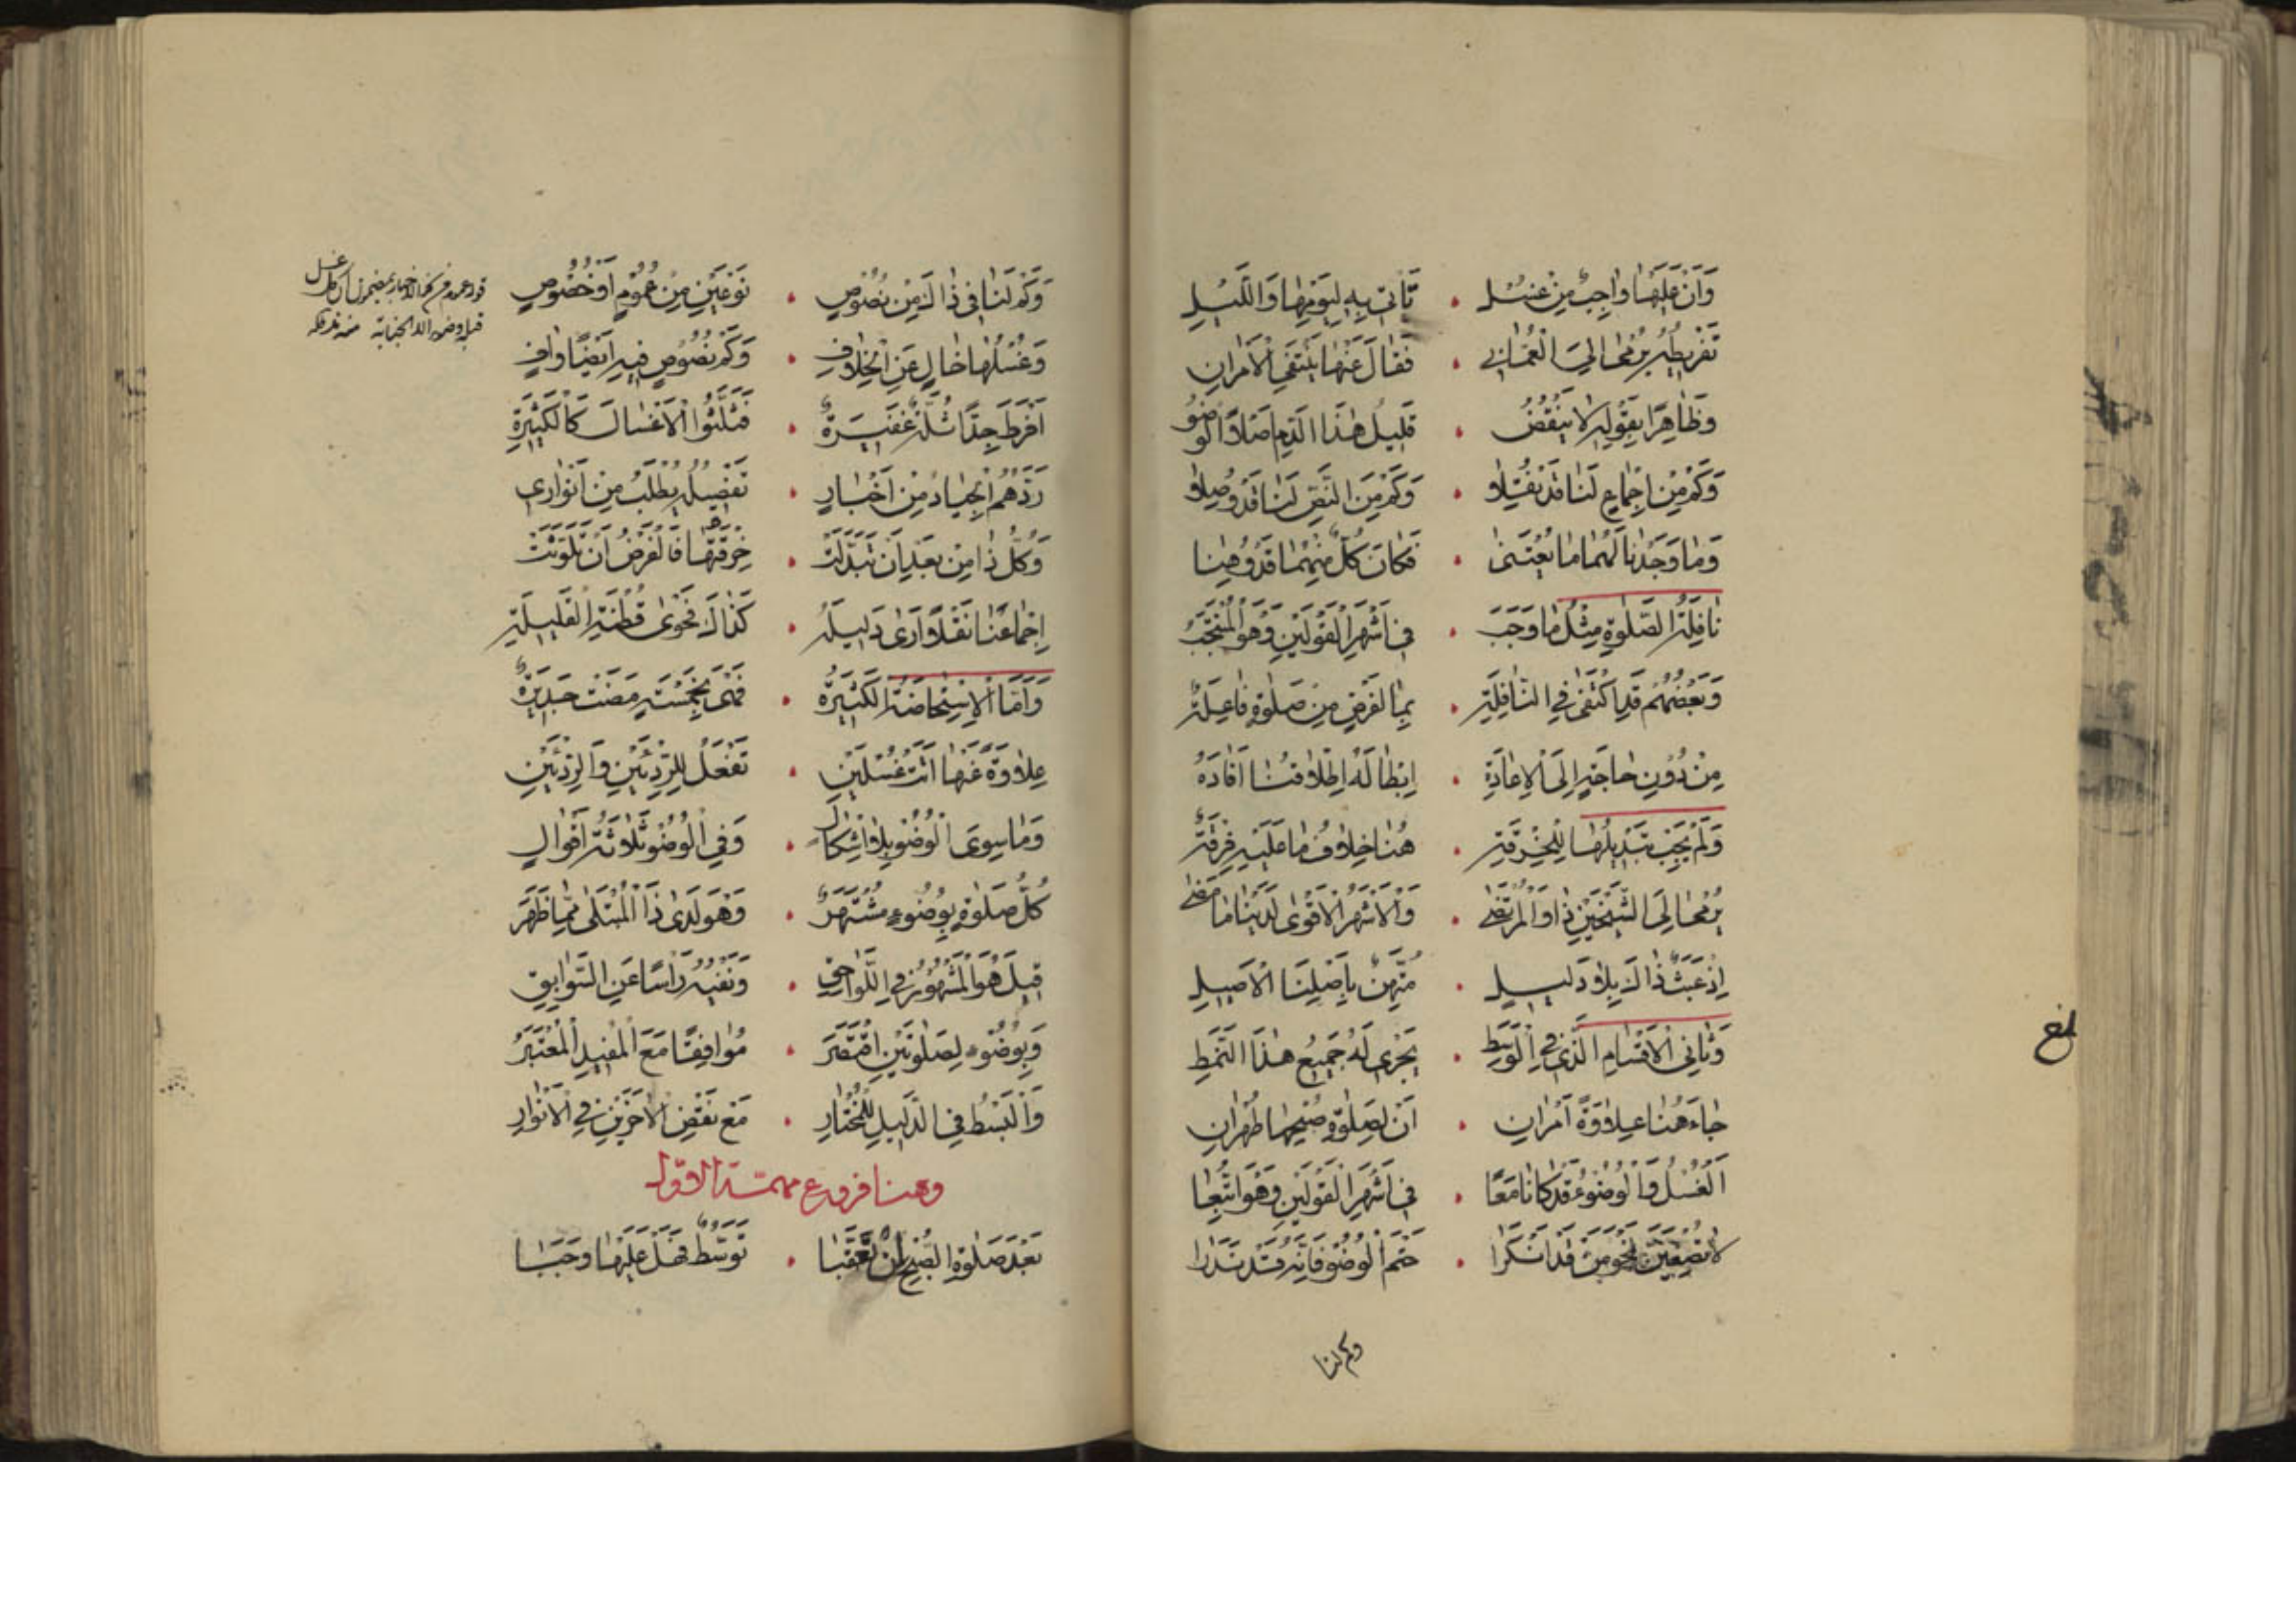 وَاَنْ عَلَيْهَا وَاجِبٌ مِنْ غُسْلِ . تَأتِي بِهِ لِيَوْمِهَا وَاللَّيْلِ
تَفْرِيطُ يُرْمٰى اِلَى الْعُمَّانِي . فَقَالَ عَنْهَا يَنْتَفِي الْاَمْرَانِ
وَظَاهِرًا بِقَوْلِهِ لَا يَنْقُضُ . قَلِيلُ هٰذَا الدَّمِ اَصْلًا الْوُضُوُ
وَكَمْ مِنْ اِجْمَاعٍ لَنَا قَدْ نُقِلَا . وَكَمْ مِنَ النَّصِّ لَنَا قَدْ وُصِلَا
وَمَا وَجَدْنَا لَهُمَا مَا يُعْتَنٰى . فَكَانَ كُلٌّ مِنْهُمَا قَدْ وُهِنَا
نَافِلَةُ الصَّلٰوةِ مِثْلُ مَا وَجَبَ . فِي اَشْهَرِ الْقَوْلَيْنِ وَهُوَ الْمُنْتَجَبُ
وَبَعْضُهُمْ قَدِ اكْتَفٰى فِي النَّافِلَةِ . بِمَا لِفَرْضٍ مِنْ صَلٰوةٍ فَاعِلَةٌ
مِنْ دُوْنِ حَاجَةٍ اِلَى الْاِعَادَةِ . اِبْطَالَهُ اِطْلَاقُنَا اَفَادَهُ
وَلَمْ يَجِبْ تَبْدِيلُهَا لِلْخِرْقَةِ . هُنَا خِلَافُ مَا عَلَيْهِ فِرْقَةٌ
يُرْمٰى اِلَى الشَّيْخَيْنِ ذَا وَالْمُرْتَضٰى . وَالْاَشْهَرُ الْاَقْوٰى لَدَيْنَا مَا مَضٰى
اِذْ عَبَثٌ ذَاكَ بِلَا دَلِيلِ . بِاَصْلِنَا الْاَصِيلِ
وَثَانِي الْاَقْسَامِ الَّذِي فِي الْوَسَطِ . يَجْرِي لَهُ جَمِيعُ هٰذَا النَّمَطِ
جَاءَ هُنَا عِلَاوَةً اَمْرَانِ . اَنْ لِصَلٰوةِ صُبْحِهَا طُهْرَانِ
اَلْغُسْلُ وَالْوُضُوءُ قَدْ كَانَا مَعًا . فِي اَشْهَرِ الْقَوْلَيْنِ وَهْوَ اتُّبِعَا
لَا تُصْغِيَنْ نَحْوَ مَنْ قَدْ اَنْكَرَا . حَتْمَ الْوُضُوْ فَاِنَّهُ قَدْ نَدَرَا
وكم لنا
بلغ
وَكَمْ لَنَا فِي ذَاكَ مِنْ نُصُوْصٍ . نَوْعَيْنِ مِنْ عُمُوْمٍ اَوْ خُصُوْصٍ
وَغُسْلُهَا خَالٍ عَنِ الْخِلَافِ . وَكَمْ نُصُوْصٍ فِيهِ اَيْضًا وَافٍ
اَفْرَطَ جِدًّا ثُلَّةٌ غَفِيرَةٌ . فَثَلَّثُوا الْاَغْسَالَ كَالْكَثِيْرَةِ
رَدَّهُمُ الْجِيَادُ مِنْ اَخْبَارِ . تَفْصِيلُهُ يُطْلَبُ مِنْ اَنْوَارِي
وَكُلُّ ذَا مِنْ بَعْدِ اَنْ تَبَدَّلَتْ . خِرْقَتُهَا فَالْفَرْضُ اَنْ تَلَوَّثَتْ
اِجْمَاعُنَا نَقْلًا اَرٰى دَلِيلَهُ . كَذَاكَ فَحْوٰى قُطْنَةِ الْقَلِيلَةِ
وَاَمَّا الْاِسْتِحَاضَةُ الْكَثِيرَةُ . فَهْيَ بِخَمْسَةٍ مَضَتْ جَدِيرَةٌ
عِلَاوَةً عَنْهَا اَتَتْ غُسْلَيْنِ . تَفْعَلُ لِلرِّدْئَيْنِ وَالرِّدْئَيْنِ
وَمَا سِوَى الْوُضُوْ بِلَا اِشْكَالِ . وَفِي الْوُضُوْ ثَلَاثَةُ اَقْوَالٍ
كُلُّ صَلٰوةٍ بِوُضُوءٍ مُشْتَهَرٌ . وَهُوَ لَدٰى ذَا الْمُبْتَلٰى مِمَّا ظَهَرَ
قِيلَ هُوَ الْمَشْهُوْرُ فِي اللَّوَاحِقِ . وَنَفْيُهُ رَأسًا عَنِ السَّوَابِقِ
وَبِوُضُوْءٍ لِصَلٰوتَيْنِ اقْتَصَرَ . مُوَافِقًا مَعَ الْمُفِيدِ الْمُعْتَبَرُ
وَالْبَسْطُ فِي الدَّلِيلِ لِلْمُخْتَارِ . مَعْ نَقْضِ الْاٰخَرَيْنِ فِي الْاَنْوَارِ
وهنا فروع مهمة الاول
بَعْدَ صَلٰوةِ الصُّبْحِ اِنْ تَعَقَّبَا . تَوَسُّطٌ فَهَلْ عَلَيْهَا وَجَبَا